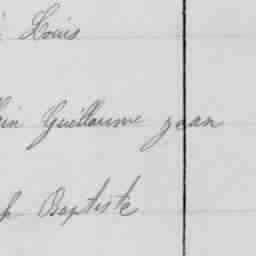 Louis
Guillaume jean
Baptiste